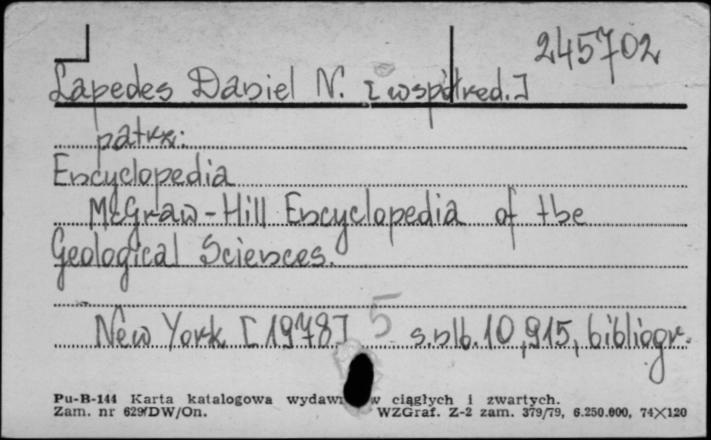 245702
Lapedes Daniel N. [współred.]
patrz:
Encyclopedia
McGraw-Hill Encyclopedia of the
Geological Sciences.
New York [1978] 5 s.nlb.10,915, bibliogr.
Pu-B-144 Karta katalogowa wydawn w ciągłych i zwartych.
Zam. nr 629/DW/On. WZGraf. Z-2 zam. 379/79, 6.250.000, 74×120